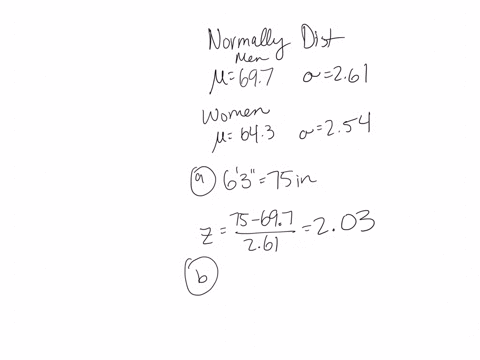 Normally Dist
Men
μ=69.7 σ=2.61
Women
μ=64.3 σ=2.54
a 6'3"=75in
z = 75-69.7 / 2.61 = 2.03
b